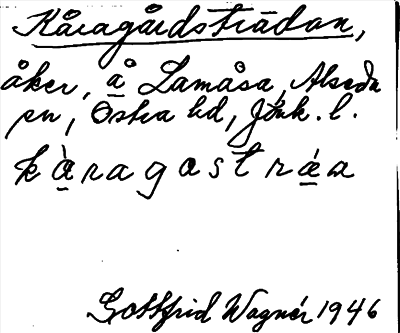 Kåragårdsträdan,
åker, å Lamåsa, Alseda
sn, Östra hd, Jönk. l.
kàragostráa
Gottfrid Wagnér 1946